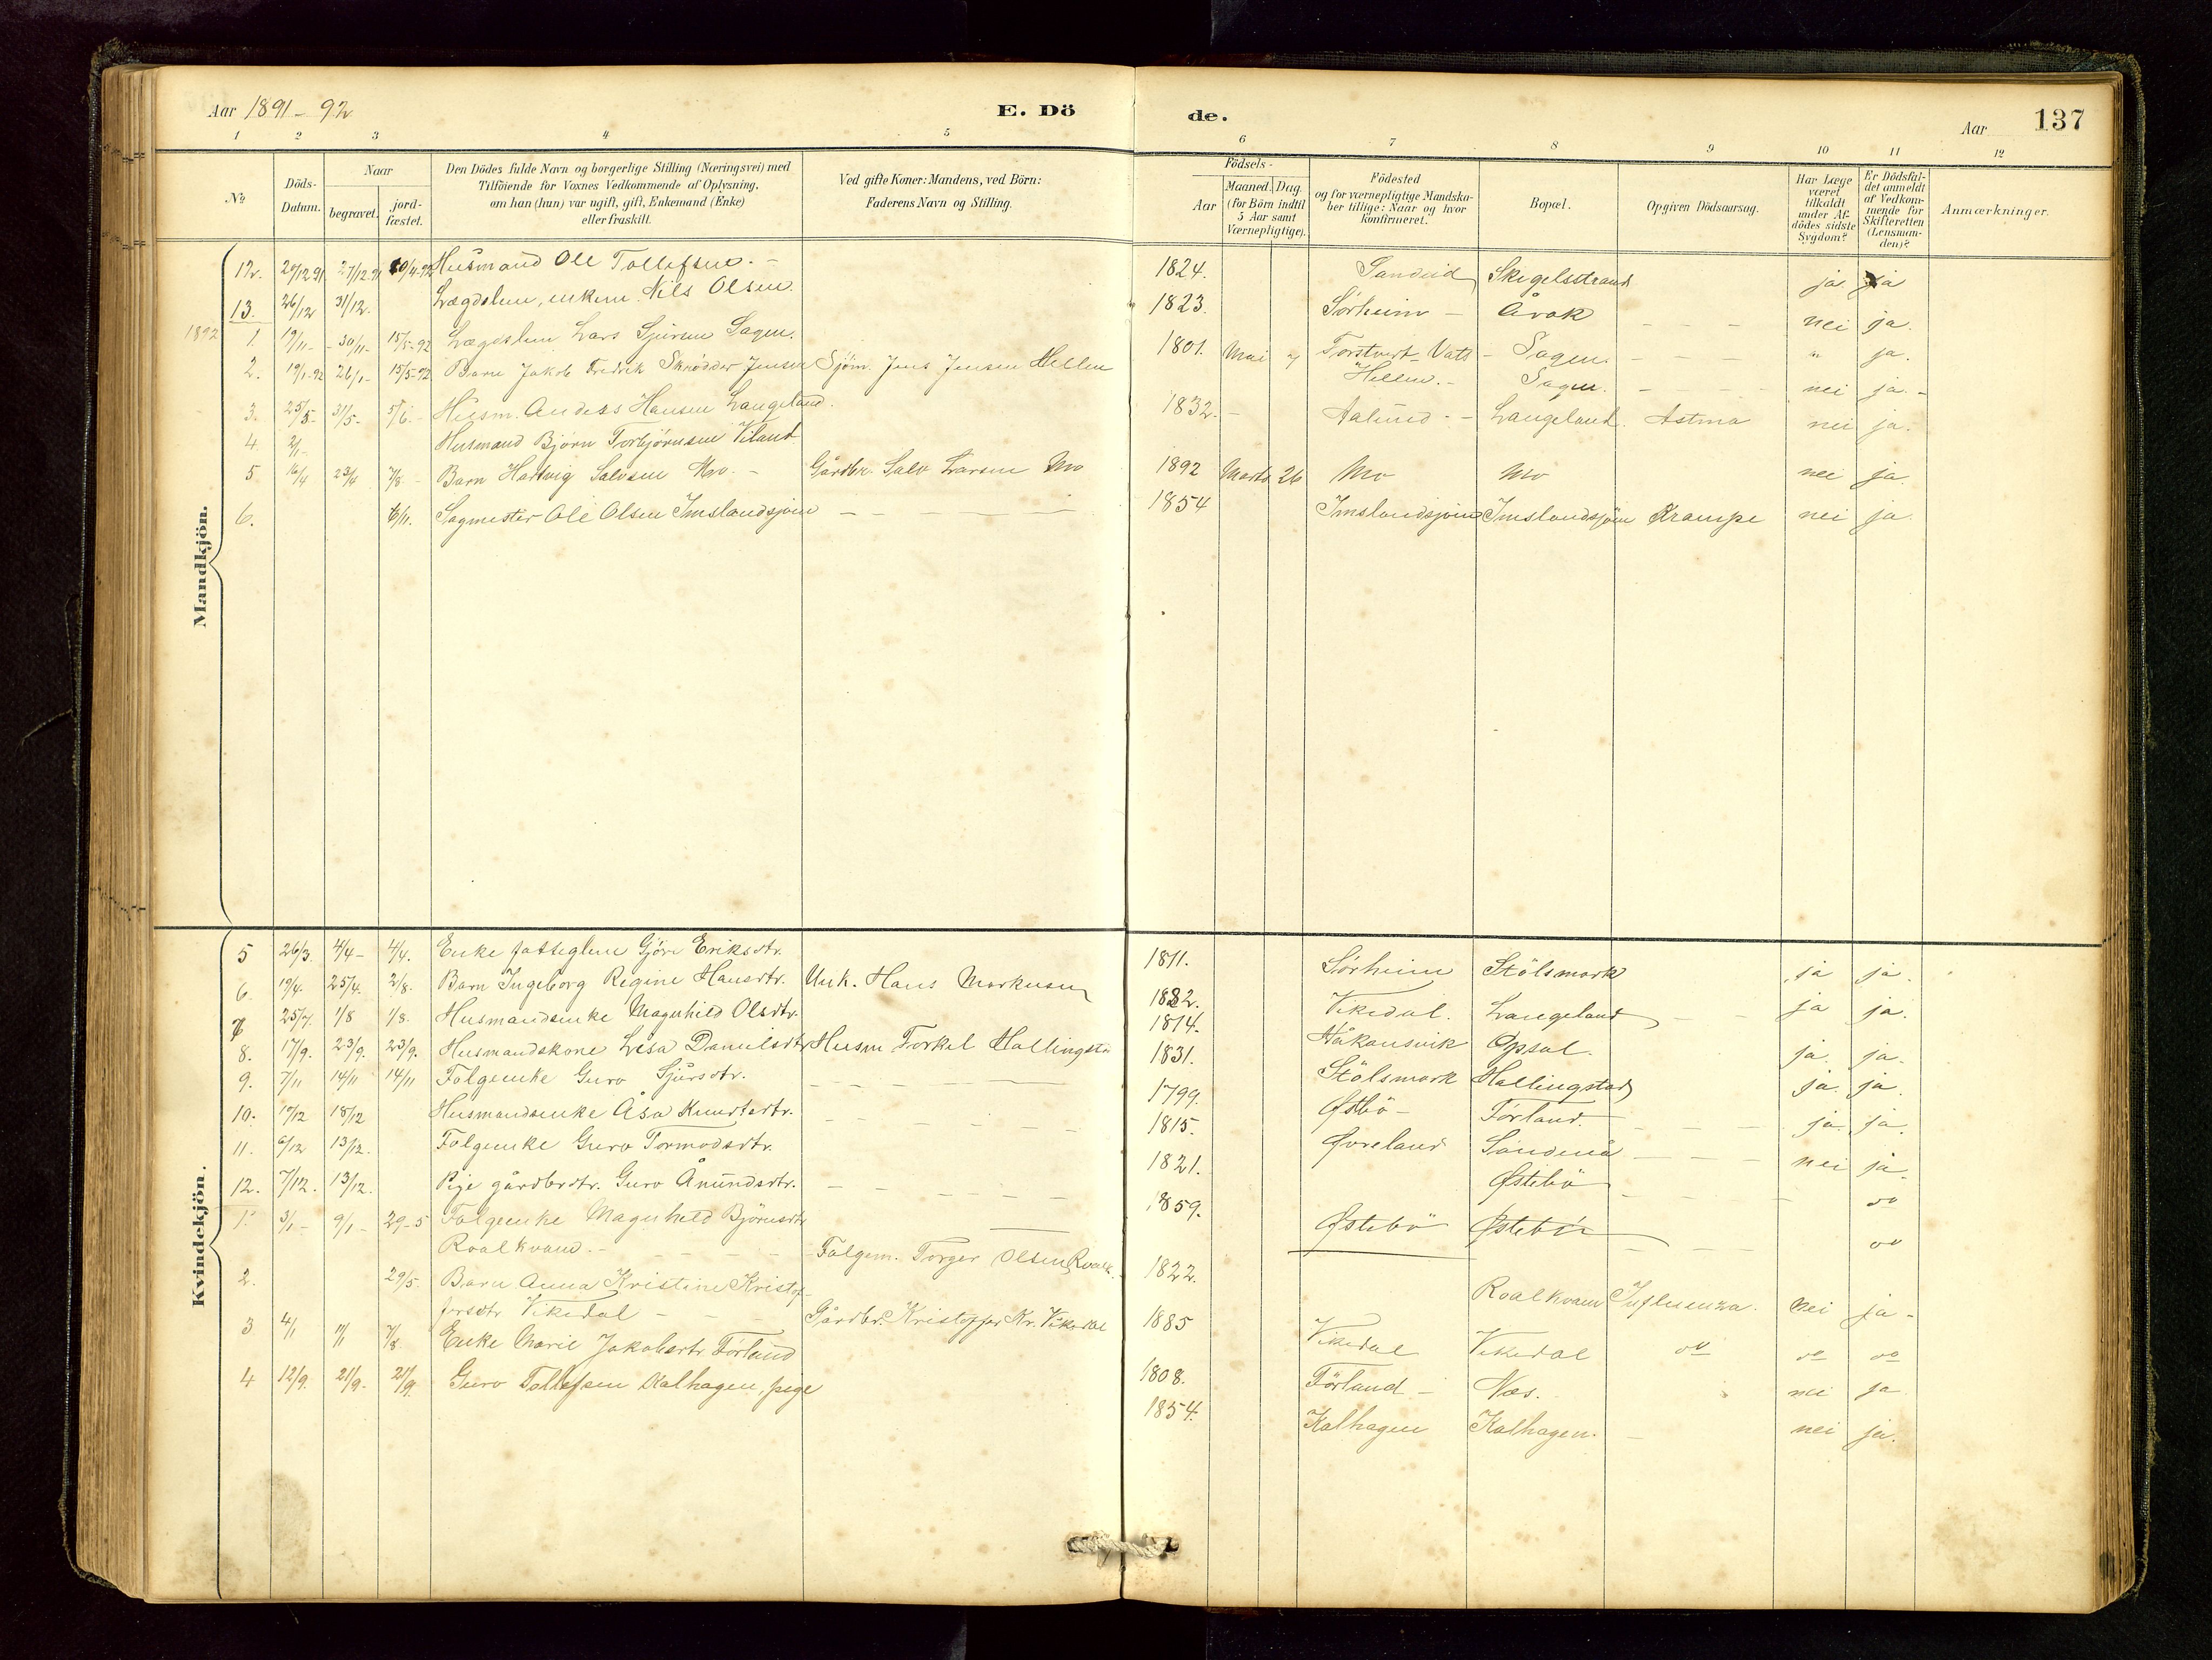 Aar 1891-92
E. Dö
de.
Aar
137
1 2 3 4 5 6 7 8 9 10 11 12
№
Döds-Datum.
Naar
begravet.
jord-fæstet.
Den Dödes fulde Navn og borgerlige Stilling (Næringsvei) med
Tilföiende for Voxnes Vedkommende af Oplysning,
om han (hun) var ugift, gift, Enkemand (Enke)
eller fraskilt.
Ved gifte Koner: Mandens, ved Börn:
Faderens Navn og Stilling.
Födsels-
Aar
Maaned. Dag.
(for Börn indtil
5 Aar samt
Værnepligtige).
Födested
og for værnepligtige Mandska-
ber tillige: Naar og hvor
konfirmeret.
Bopæl.
Opgiven Dödsaarsag.
Har Læge
været
tilkaldt
under Af-
dödes sidste
Sygdom?
Er Dödsfal-
det anmeldt
af Vedkom-
mende for
Skifteretten
(Lensman-
den)?
Anmærkninger.
Mandkjön.
12. 27/12 91 Husmand Ole Tollefsen. - 1824. Sandeid Skegelsstrand ja. ja
13. 26/12 31/12. Lægdslem, enkem. Nils Olsen 1823. Sörheim - Åvok - - - nei ja.
1892
1. 30/11- 15/5-92 Lægdslem Lars Sjursen Sagen. 1801. Vats - Sagen. - - - " ja.
2. 19/1-92 26/1- 15/5-92 Barn Jakob Fredrik Skrödder Jensen Sjöm. Jens Jensen Hellen Mai Hellen. - Sagen. - - - - nei ja. -
3. 25/5- 31/5- 5/6- Husm. Anders Hansen Langeland. 1832. - Aalund - - Langeland. Astma nei ja.
4 2/1- Husmand Björn Torbjörnsen Viland
5 16/4 23/4 7/8 - Barn Hartvig Salvesen Mo. - Gårdbr. Salv Larsen Mo 1892 Marts 26 Mo Mo nei ja
6. 6/11. Sagmester Ole Olsen Imslandsjöen - - - 1854 Imslandsjöen Imslandsjöen Krampe nei ja
Kvindekjön.
5 26/3. 4/4- 4/4. Enke fattiglem Gjöri Eriksdtr. 1811. Sörheim Stölsmark ja ja.
6. 19/4. 25/4. 2/8. Barn Ingeborg Regine Hansdtr. Unk. Hans Markusen 1882. Vikedal. Langeland - - ja ja.
7 25/7. 1/8 1/8. Husmandsenke Magnhild Olsdtr. 1814. Håkonsvik Opsal. ja. ja.
8. 17/9. 23/9. 23/9. Husmandskone Lisa Danielsdtr Husm Torkel Hallingsta 1831. Stölsmark Hallingstad ja. ja.
9. 7/11 14/11 14/11 Folgeenke Guro Sjursdtr. - - - 1799. Østbö - Törland. - - - ja. ja.
10. 12/12 18/12 Husmandsenke Åsa Knutsdtr. - - - 1815. Øvreland Sandenå - - - nei ja
11. 6/12 13/12. Folgeenke Guro Tormodsdtr. 1821. Østebö - - - do
12. 7/12. 13/12. Pige gårdbrdtr. Guro Ånundsdtr. - - - - - 1859. Østebö Østebö - - do
1. 3/1- 9/1- 29-5 Folgeenke Magnhild Björnsdtr
Roalkvam. - - - - - Folgem. Torger Olsen Roalk. 1822. Roalkvam Influenza. nei ja -
2. 29/5. Barn Anna Kristine Kristof-
fersdtr Vikedal - - - Gårdbr. Kristoffer Kr. Vikedal 1885 Vikedal Vikedal do do do
3 4/1 7/8 Enke Marie Jakobsdtr Törland 1808. Törland - Næs. nei ja
4 12/9. 21/9. 21/9. Guro Tollefsen Kalhagen, pige 1854. Kalhagen Kalhagen. - nei ja.